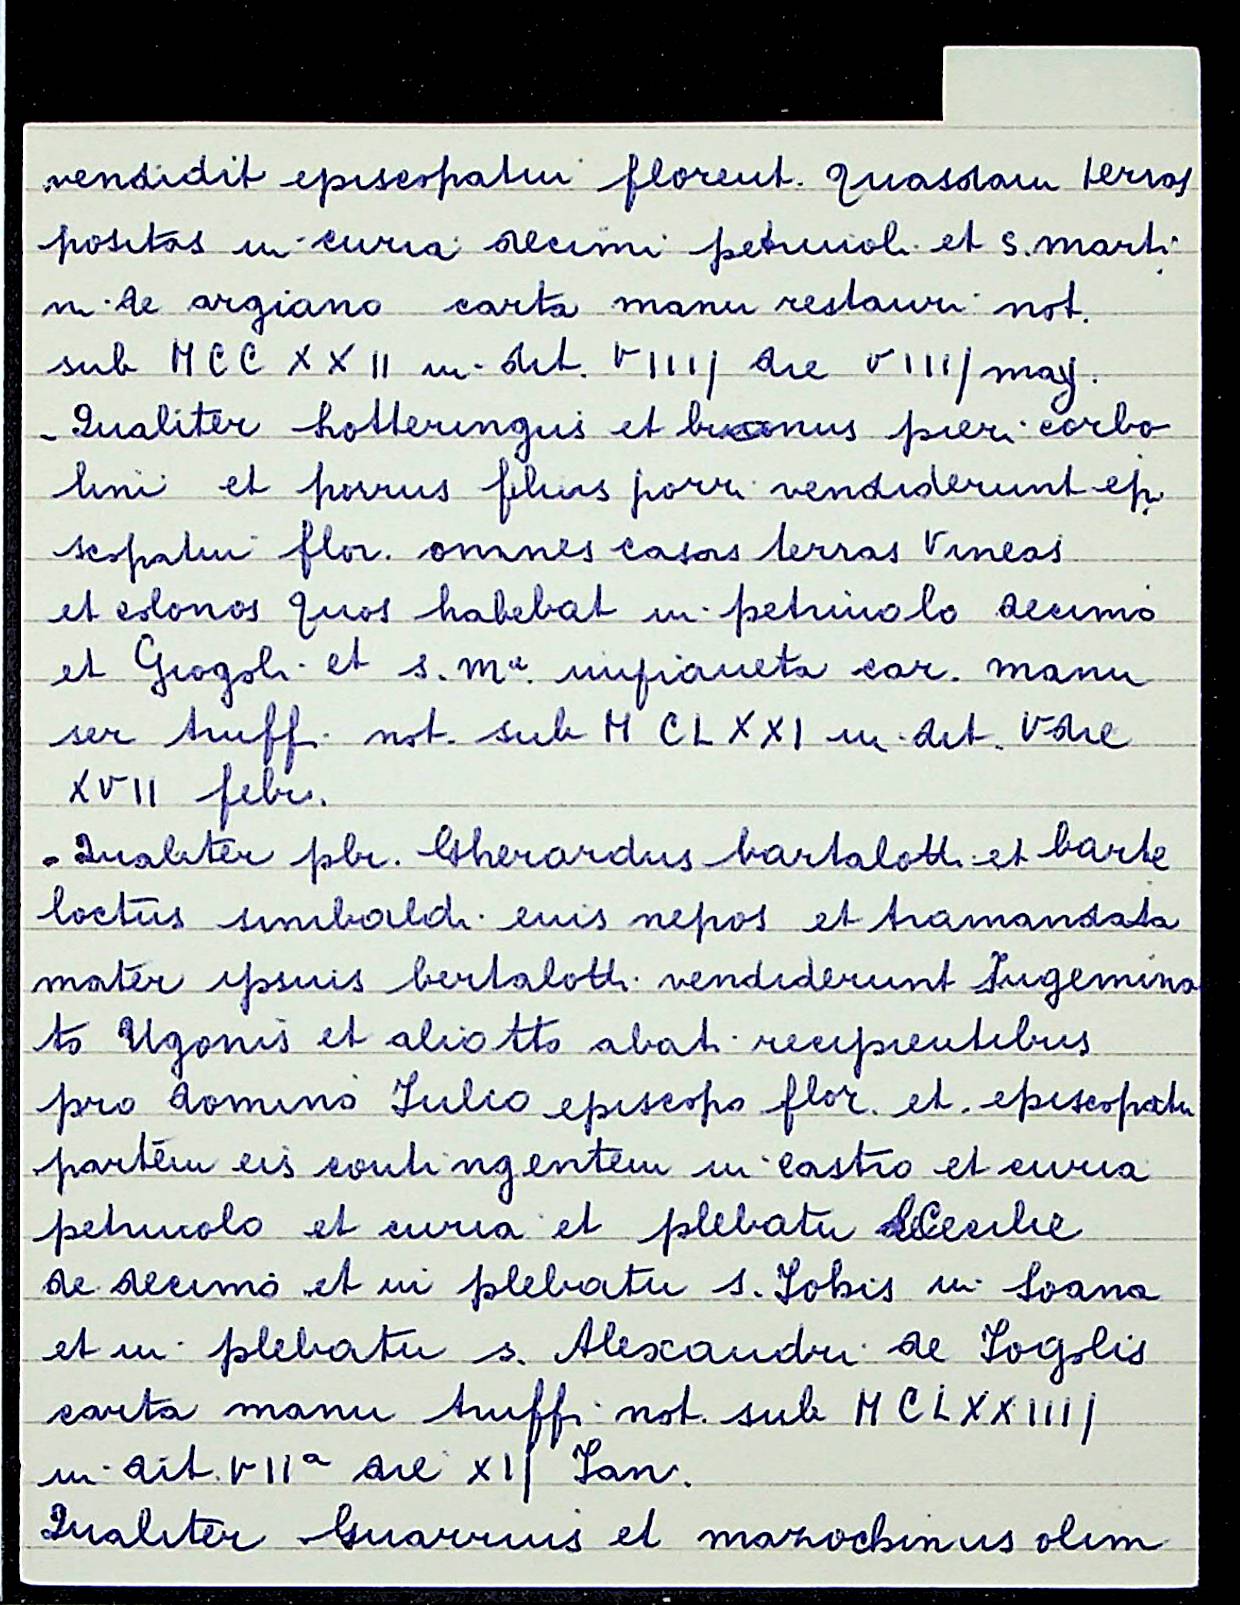 vendidit episcopatui florent. quasdam terras
positas in curia decimi petriuoli et S. marti
ni de argiano carta manu restauri not.
sub MCCXXII indit. VIII/ die VIII/ maij.
- Qualiter hotteringus et bruonus pieri corbo
lini et porrus filius porri vendiderunt epi
scopatui flor. omnes casas terras vineas
et colonos quos habebat in petriuolo decimo
et Giogoli et s. Ma. impianeta car. manu
ser truffi not. sub MCLXXI indit. V die
XVII febr.
- Qualiter pbr. Gherardus bartalotti et barte
loctus sinibaldi eius nepos et tramandata
mater ipsius bertalotti vendiderunt Jugemina
to Ugonis et aliotto abati recipientibus
pro domino Julio episcopo flor. et episcopatu
partem eis contingentem in castro et curia
petriuolo et curia et plebatu Cecilie
de decimo et in plebatu S. Johis in Soana
et in plebatu s. Alexandri de Jogolis
carta manu truffi not. sub MCLXXIIII/
indit. VIIa die XI/ Jan.
Qualiter Guarnius et mazochinus olim